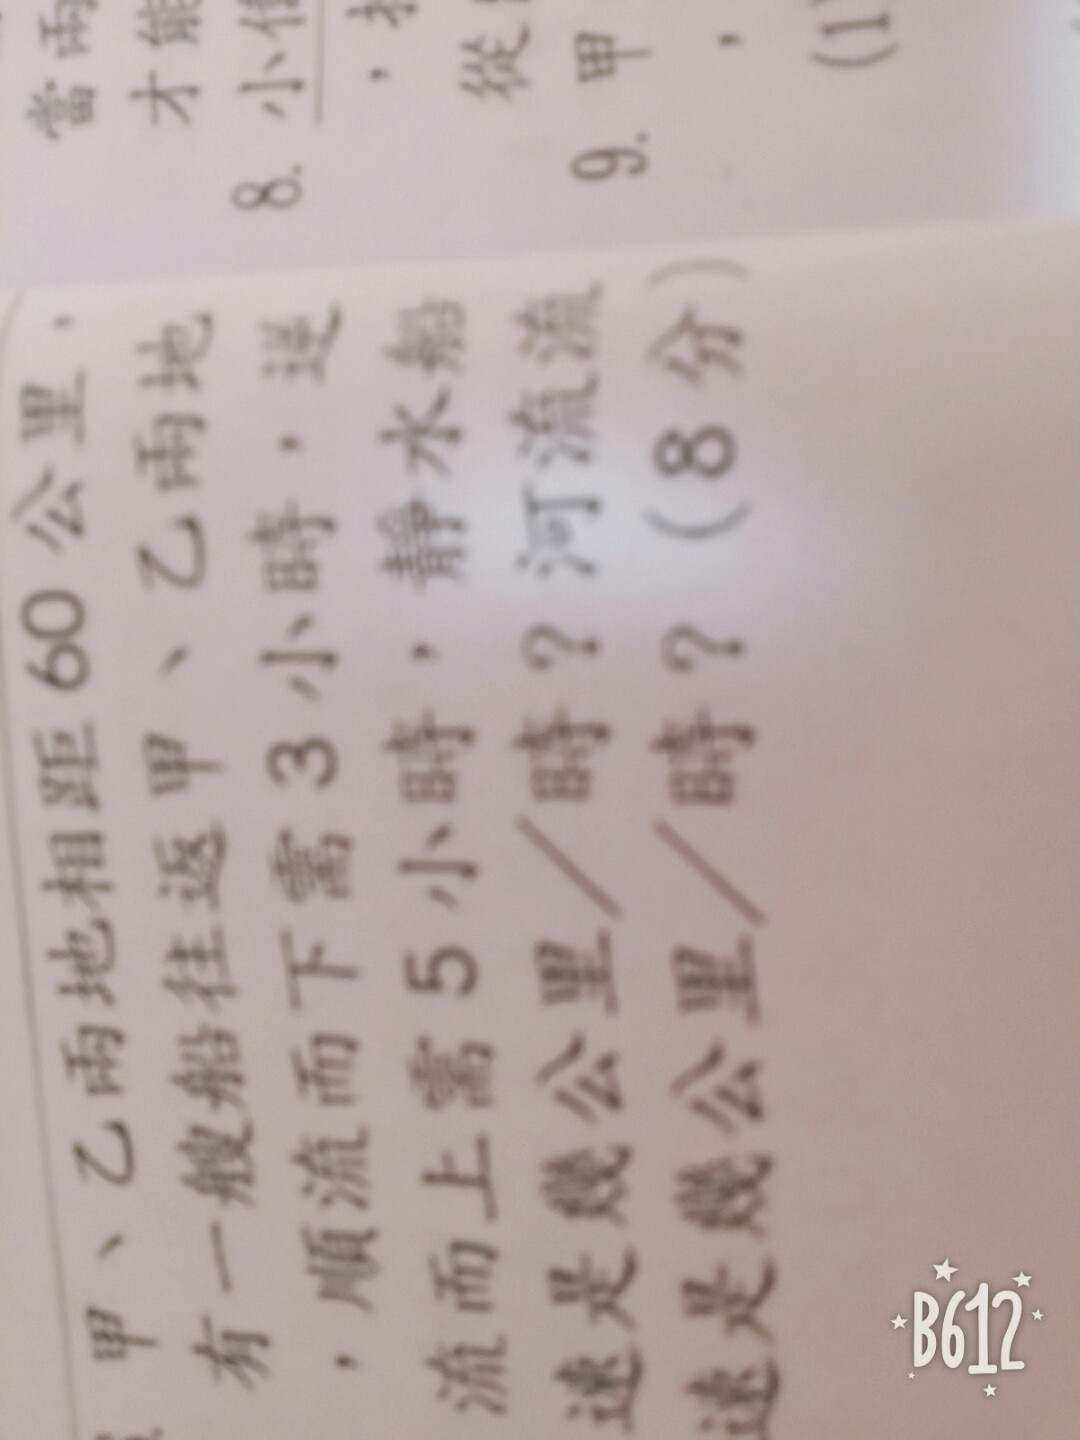 甲、乙兩地相距60公里,
有一艘船往返甲、乙兩地
,順流而下需3小時,逆
流而上需5小時,靜水船
速是幾公里/時?河流流
速是幾公里/時?(8分)
當兩
才能
8. 小
,
從
9. 甲
,
(1
B612